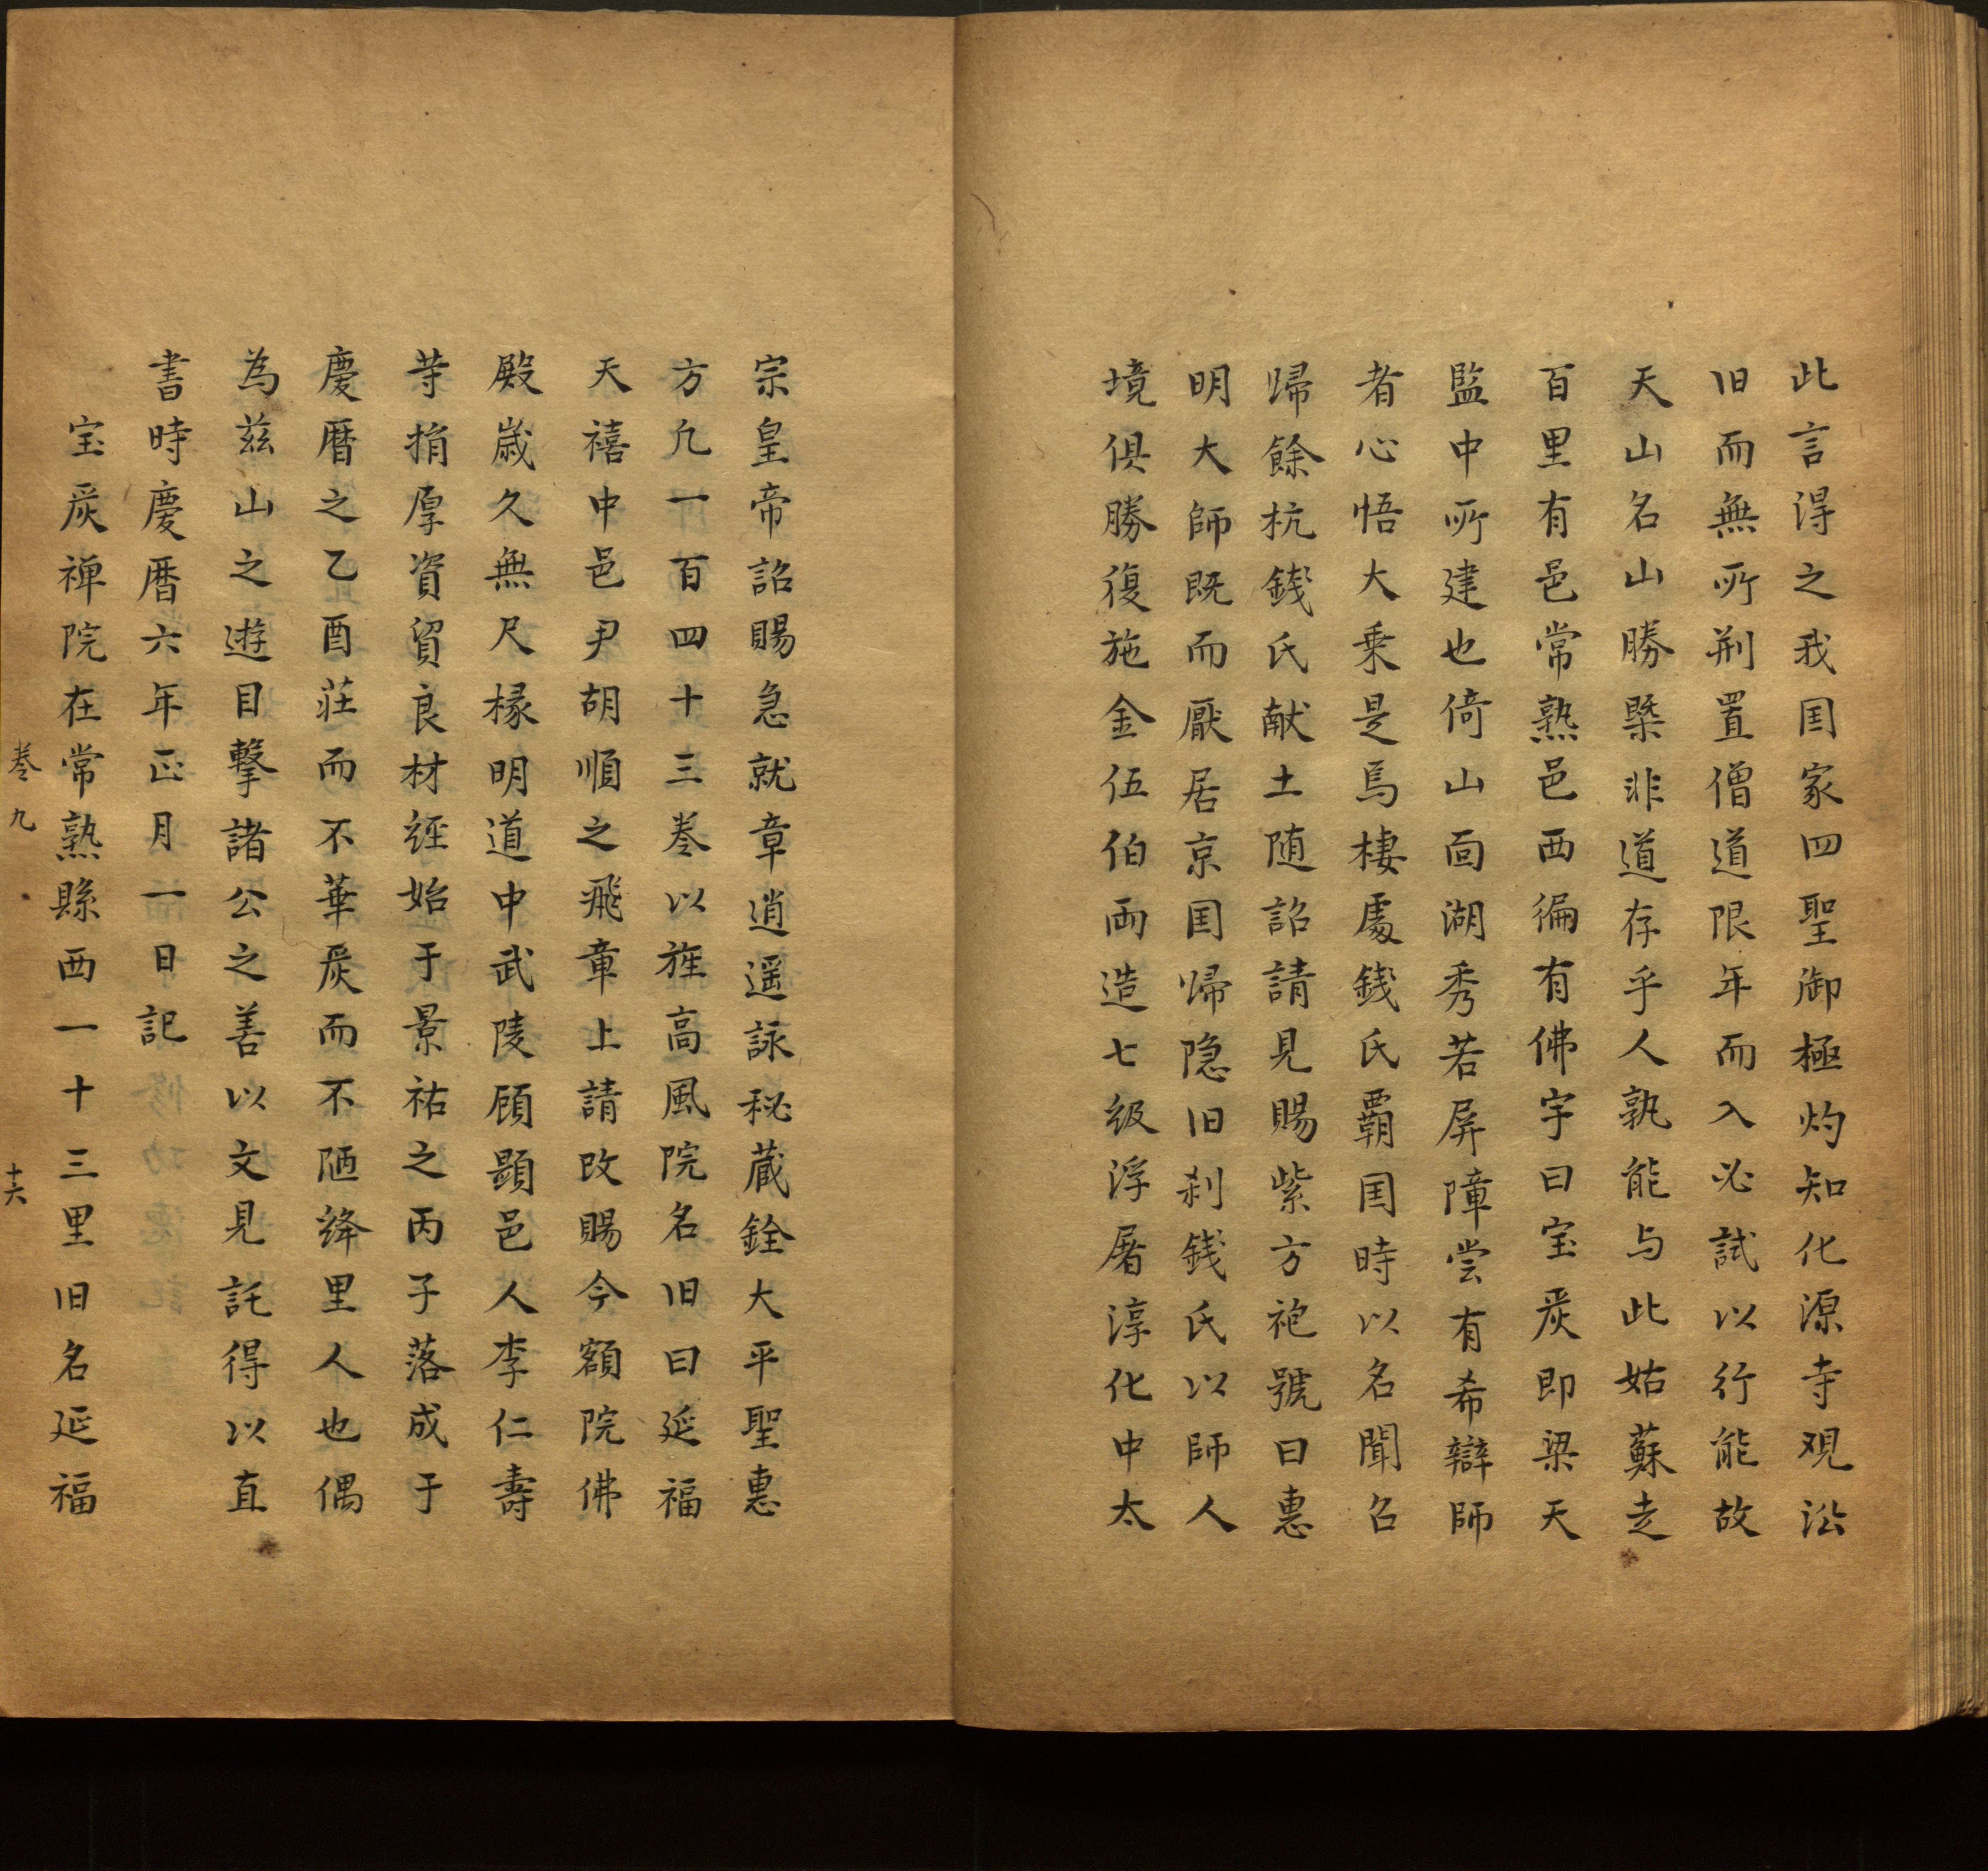 此言得之我国家四聖御極灼知化源寺观㳂
旧而無所刱置僧道限年而入必試以行能故
天山名山勝槩非道存乎人孰能与此姑蘇走
百里有邑常熟邑西徧有佛宇曰宝岩即梁天
監中所建也倚山面湖秀若屏障尝有希辯師
者心悟大乗是焉棲處錢氏覇国時以名聞召
歸餘杭錢氏献土随詔請見賜紫方袍號曰惠
明大師既而厭居京国歸隐旧刹錢氏以師人
境俱勝復施金伍伯両造七级浮屠淳化中太
宗皇帝詔賜急就章逍遥詠秘蔵銓大平聖惠
方凢一百四十三巻以旌高風院名旧曰延福
天禧中邑尹胡順之飛章上請改賜今額院佛
殿嵗久無尺椽明道中武陵顾顕邑人李仁壽
䓁捐厚資貿良材経始于景祐之丙子落成于
慶暦之乙酉莊而不華岩而不陋绛里人也偶
為兹山之遊目擊諸公之善以文見託得以直
書時慶暦六年正月一日記
宝岩禅院在常熟縣西一十三里旧名延福
巻九
十六